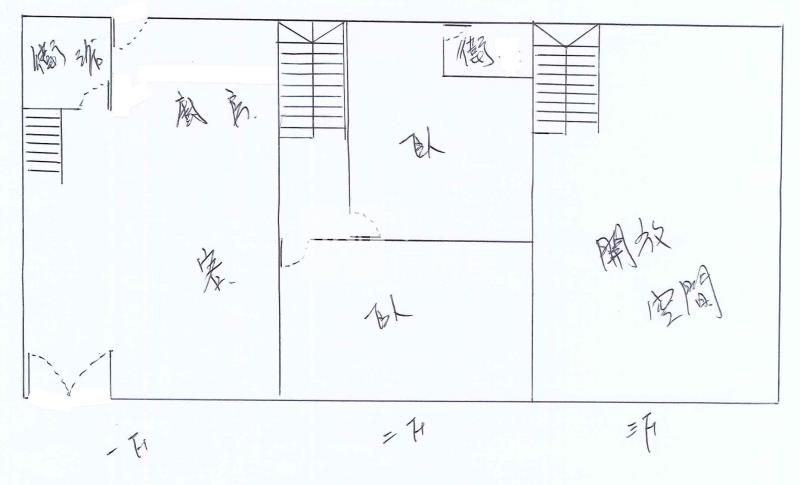 衛浴
廚房
客
衛
臥
臥
開放
空間
一F
二F
三F